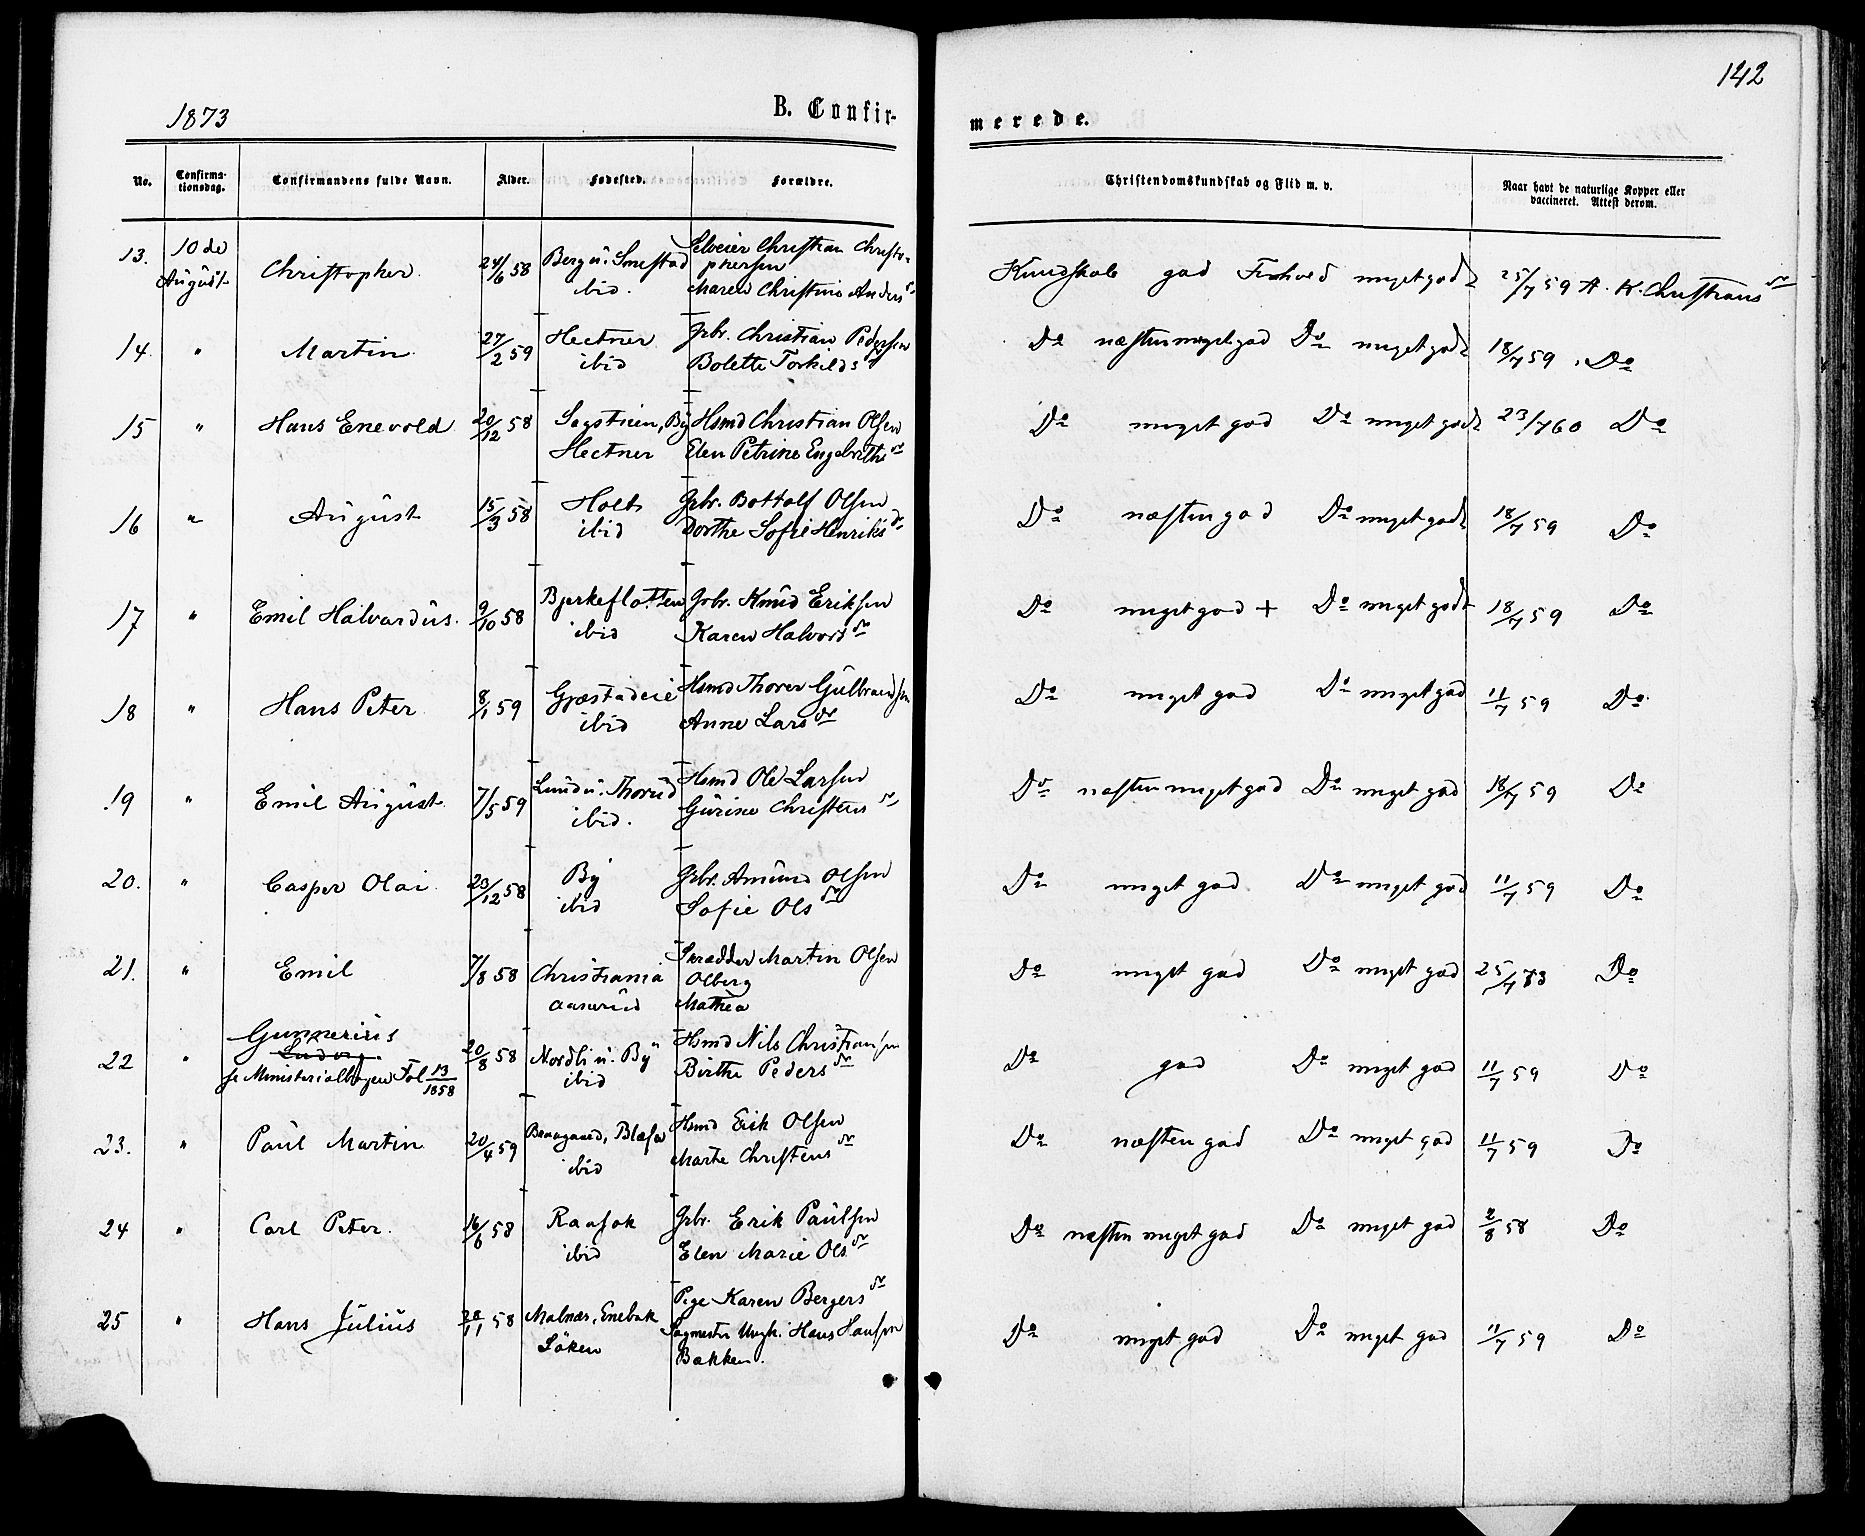 142
1873
B. Confir-
merede.
No. Confirma-tionsdag. Confirmandens fulde Navn. Alder. Fødested. Forældre. Christendomskundskab og Flid m. v. Naar havt de naturlige Kopper eller vaccineret. Attest derom.
13. 10de August Christopher 24/6 58 Berg u. Smestad ibid. Selveier Christian Christo-
phersen
Maren Christine Anders dr Kundskab god Forhold meget godt 25/7 59 A. K. Christians dr
14. " Martin 27/2 59 Hectner ibid Gbr. Christian Pedersen
Bolette Torkilds dr Do næsten meget god Do meget godt 18/7 59 Do
15 " Hans Enevold 20/12 58 Sagstuen, By Hectner Hsmd Christian Olsen
Elen Petrine Engebrethsdr Do meget god Do meget godt 23/7 60 Do
16 " August 15/3 58 Holt ibid Gbr. Bottolf Olsen
Dorthe Sofie Henriks dr Do næsten god Do meget godt 18/7 59 Do
17 " Emil Halvardus. 9/10 58 Bjerkeflotten ibid Gbr. Knud Eriksen
Karen Halvors dr Do meget god + Do meget godt 18/7 59 Do
18 " Hans Peter 8/1 59 Gjæstadeie ibid Hsmd Thorer Gulbrandsen
Anne Lars dr Do meget god Do meget god 11/7 59 Do
19 " Emil August 7/5 59 Lund u. Thorud ibid. Hsmd Ole Larsen
Gurine Christens dr Do næsten meget god Do meget god 18/7 59 Do
20. " Casper Olai 23/12 58 By ibid Gbr. Amund Olsen
Sofie Ols dr Do meget god Do meget god 11/7 59 Do
21. " Emil 7/8 58 Christiania Aaserud Skrædder Martin Olsen
Olberg
Mathea Do meget god Do meget god 25/7 73 Do
22 " Gunnerius
Ludvig
se Ministerialbogen Fol 13/1858 20/8 58 Nordli u. By ibid Hsmd Nils Christiansen
Birthe Peders dr Do god Do meget god 11/7 59 Do
23. " Paul Martin 20/4 59 ibid Hsmd Erik Olsen
Marthe Christens dr Do næsten god Do meget god 11/7 59 Do
24 " Carl Peter 16/6 58 Raasok ibid Gbr. Erik Paulsen
Elen Marie Ols dr Do næsten meget god Do meget god 2/8 58 Do
25 " Hans Julius 28/11 58 Malnæs, Enebak Löken Pige Karen Bergers dr
Sagmester Ungk. Hans Hansen
Bakken. Do meget god Do meget god 11/7 59 Do